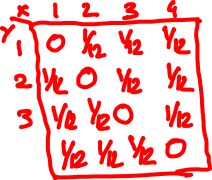 x 1 2 3 4
y 1 0 1/12 1/12 1/12
2 1/12 0 1/12 1/12
3 1/12 1/12 0 1/12
1/12 1/12 1/12 0